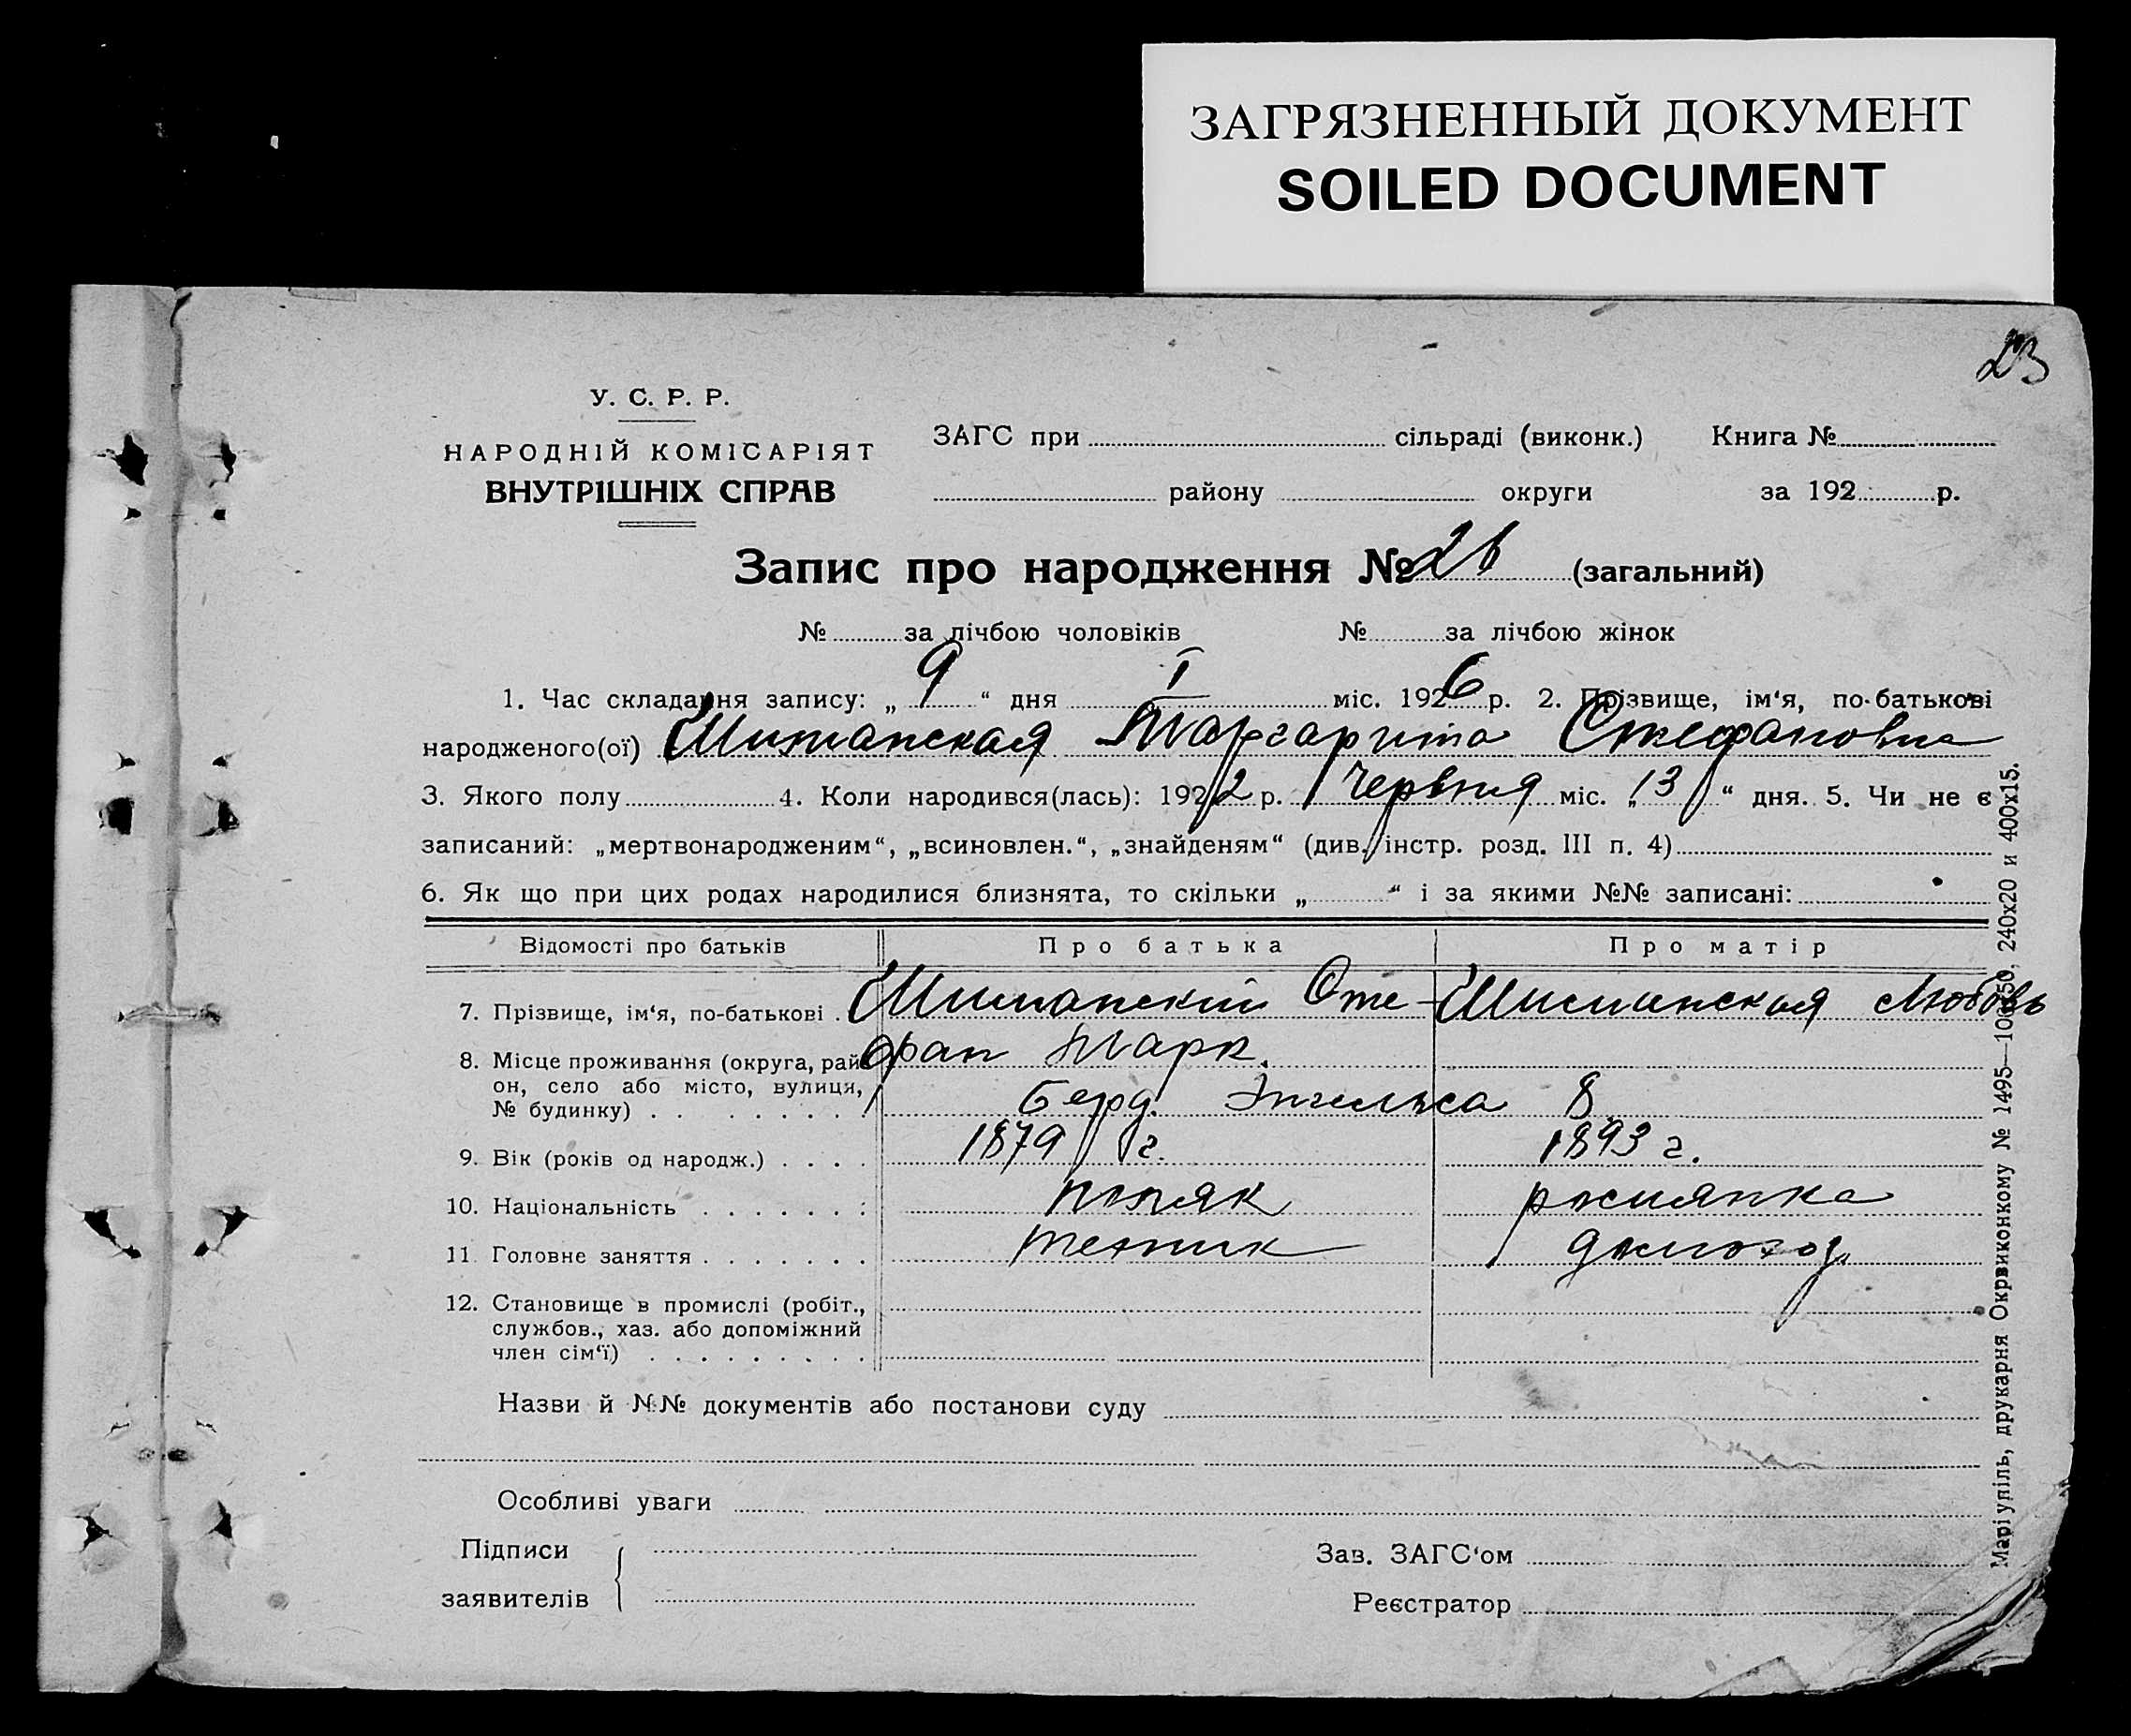 ЗАГРЯЗНЕННЫЙ ДОКУМЕНТ
SOILED DOCUMENT
23
У. С. Р. Р.
НАРОДНІЙ КОМІСАРІЯТ
ВНУТРІШНІХ СПРАВ
ЗАГС при сільраді (виконк.) Книга №
району округи за 192 р.
Запис про народження № 26 (загальний)
№ за лічбою чоловіків № за лічбою жінок
1. Час складання запису: „ 9 “ дня I міс. 1926 р. 2. Прізвище, ім‘я, по-батькові
народженого(ої) Шиманская Маргарита Стефановна
3. Якого полу 4. Коли народився(лась): 1922 р. Червня міс. „ 13 “ дня. 5. Чи не є
записаний: „мертвонародженим“, „всиновлен.“, „знайденям“ (див. інстр. розд. III п. 4)
6. Як що при цих родах народилися близнята, то скільки „ “ і за якими №№ записані:
Відомості про батьків Про батька Про матір
7. Прізвище, ім‘я, по-батькові . Шиманский Сте- Шиманская Любовь
фан Марк.
8. Місце проживання (округа, рай-
он, село або місто, вулиця,
№ будинку) . . . . . . . . Берд. Энгельса 8
9. Вік (років од народж.) . . . . 1879 г. 1893 г.
10. Національність . . . . . . . поляк росиянка
11. Головне заняття . . . . . . . техник домохоз.
12. Становище в промислі (робіт.,
службов., хаз. або допоміжний
член сім‘ї) . . . . . . . . .
Назви й №№ документів або постанови суду
Особливі уваги
Підписи
заявителів
Зав. ЗАГС‘ом
Реєстратор
Маріупіль, друкарня Окрвиконкому № 1495—100 240х20 и 400х15.